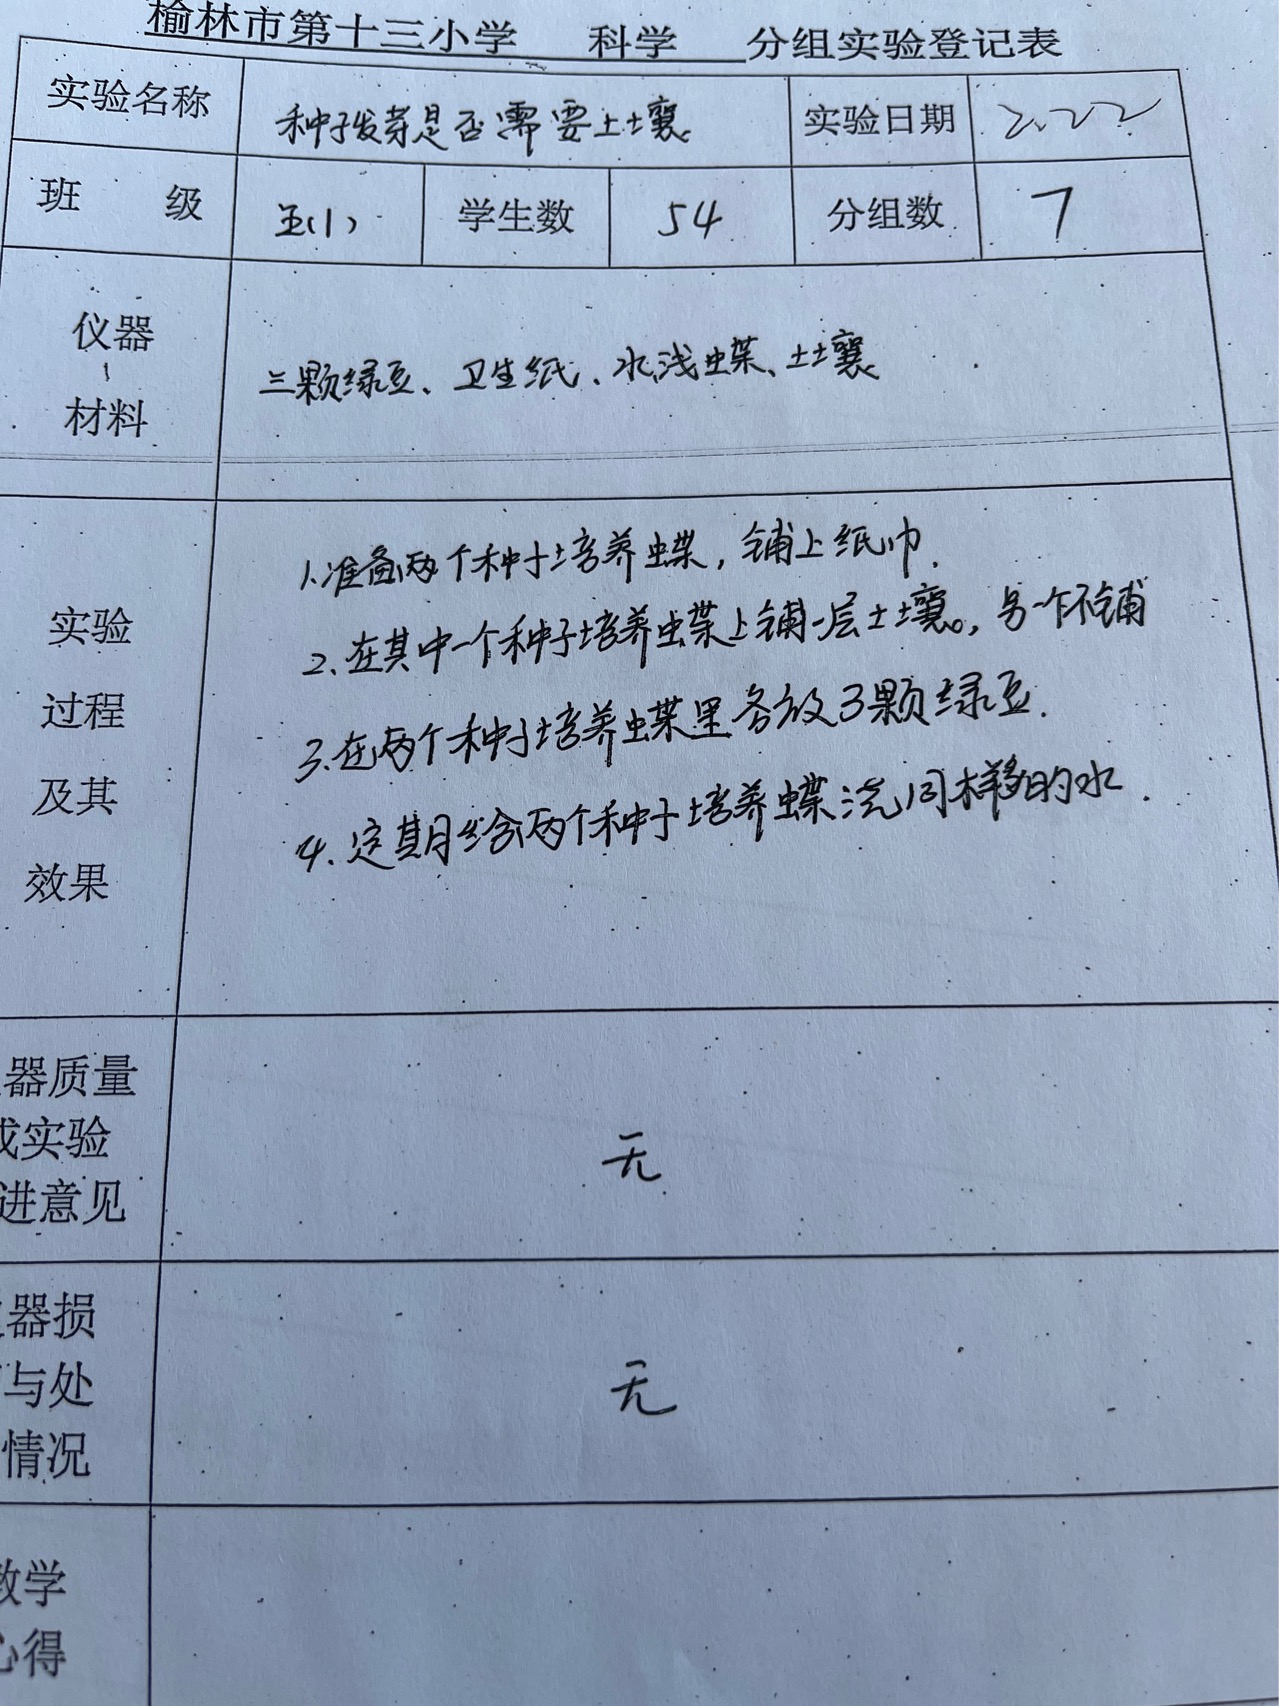 榆林市第十三小学 科学 分组实验登记表
实验名称 种子发芽是否需要土壤 实验日期 2.22
班 级 五(1) 学生数 54 分组数 7
仪器
材料
三颗绿豆、卫生纸、水浅蝶、土壤
实验
过程
及其
效果
1.准备两个种子培养蝶，铺上纸巾.
2.在其中一个种子培养蝶上铺一层土壤。，另一个不铺
3.在两个种子培养蝶里各放3颗绿豆.
4.定期给两个种子培养蝶浇同样多的水.
器质量
或实验
进意见
无
器损
与处
情况
无
教学
心得